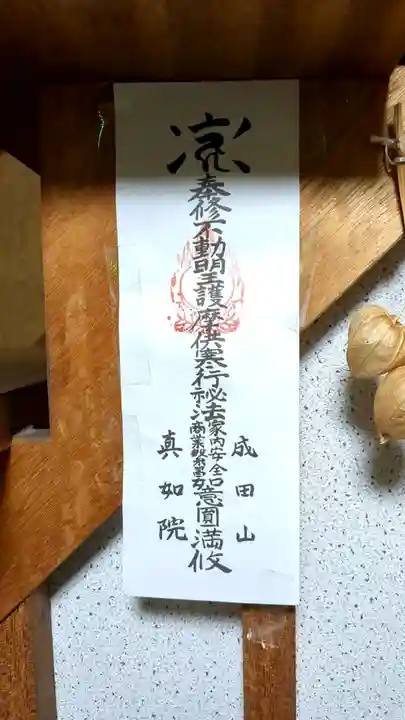 奉修不動明王護摩供寒行秘法家内安全商業繁栄意圓満攸
成田山
真如院